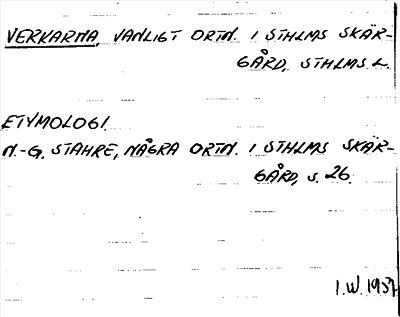 VERKARNA, VANLIGT ORTN. I STHLMS SKÄR-
GÅRD, STHLMS L.
ETYMOLOGI.
N.-G. STAHRE, NÅGRA ORTN. I STHLMS SKÄR-
GÅRD, s. 26.
I.W. 1957